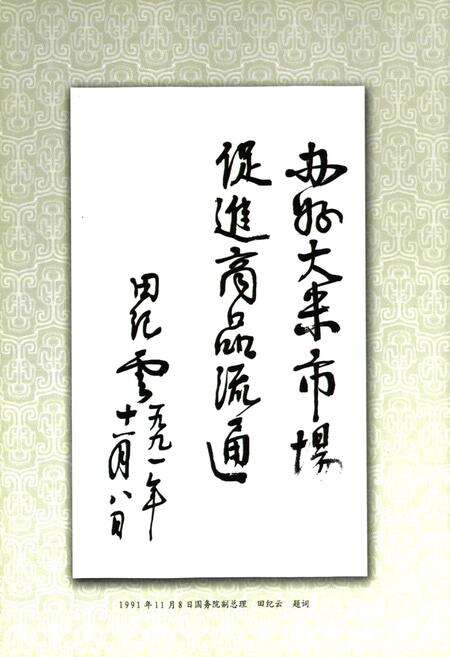 办好大米市場
促進商品流通
田纪雲
一九九一年
十一月八日
1991年11月8日国务院副总理 田纪云 题词